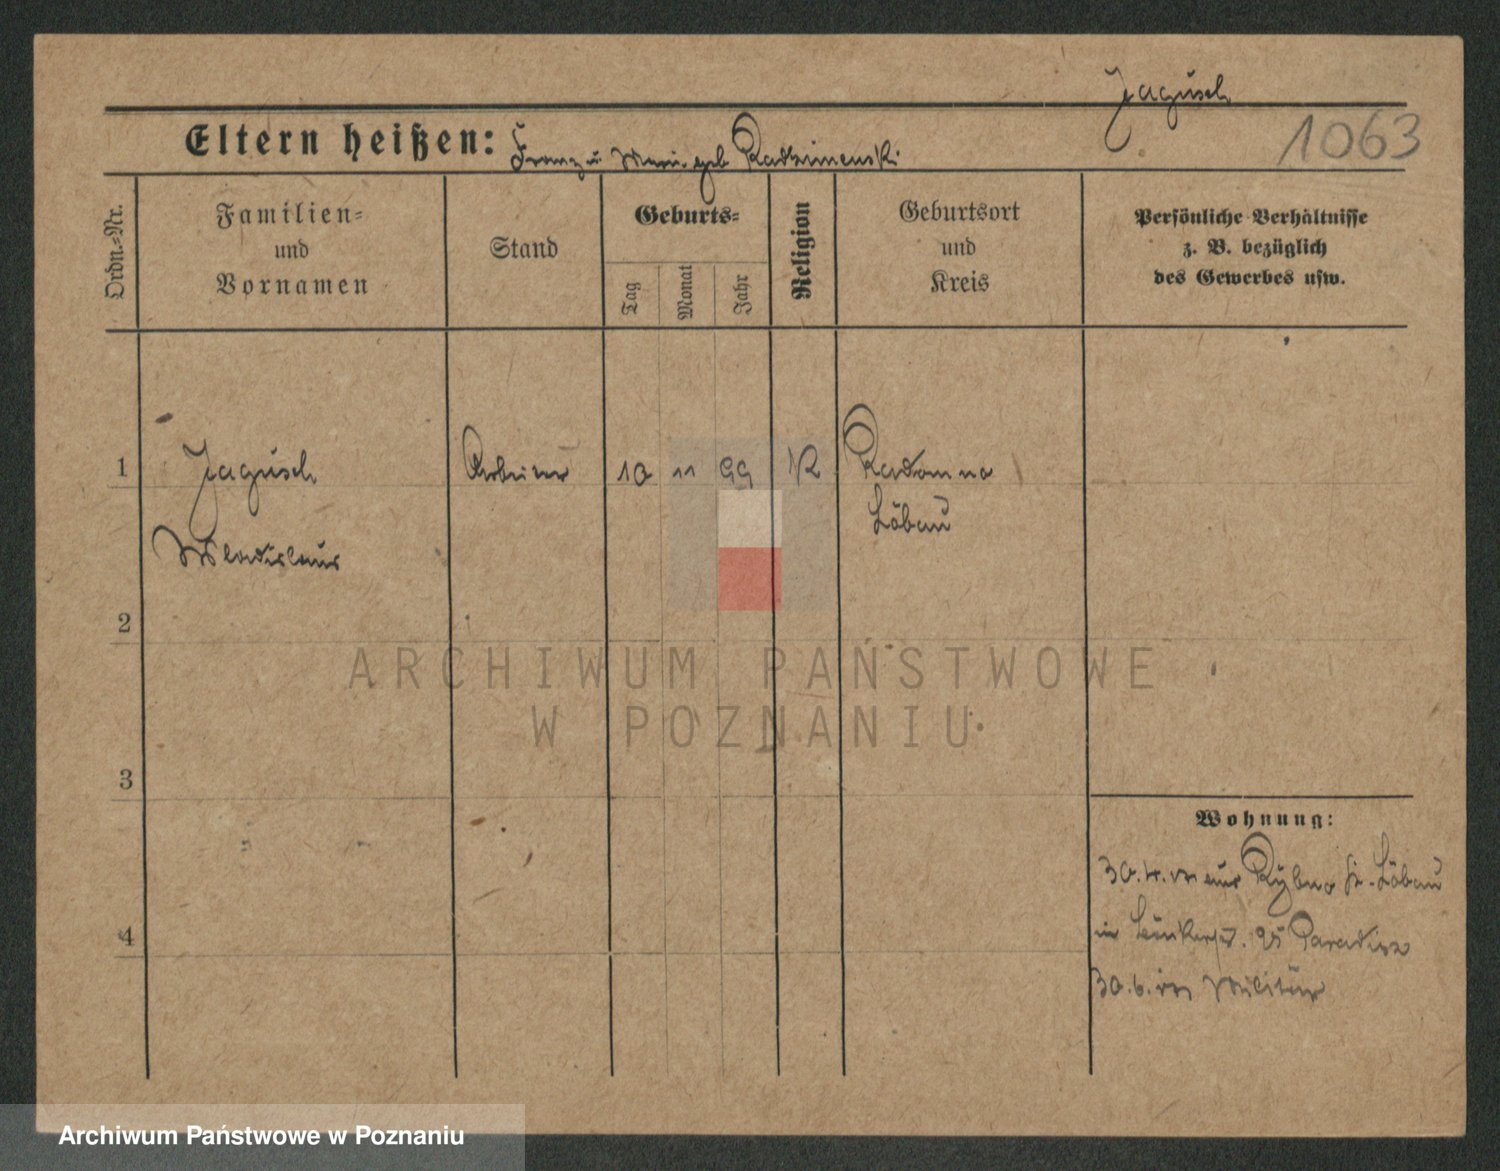 Jagusch
1063
Eltern heißen: Franz u Marie geb Radziminski
Ordn.=Nr.
Familien=
und
Vornamen
Stand
Geburts=
Tag
Monat
Jahr
Religion
Geburtsort
und
Kreis
Persönliche Verhältnisse
z. B. bezüglich
des Gewerbes usw.
1 Jagusch Arbeiter 10 11 99 K Radomno
Löbau
Wladislaus
2
ARCHIWUM PAŃSTWOWE
W POZNANIU
3
Wohnung:
4
aus Rybno Löbau
in
30.6. Militär
Archiwum Państwowe w Poznaniu